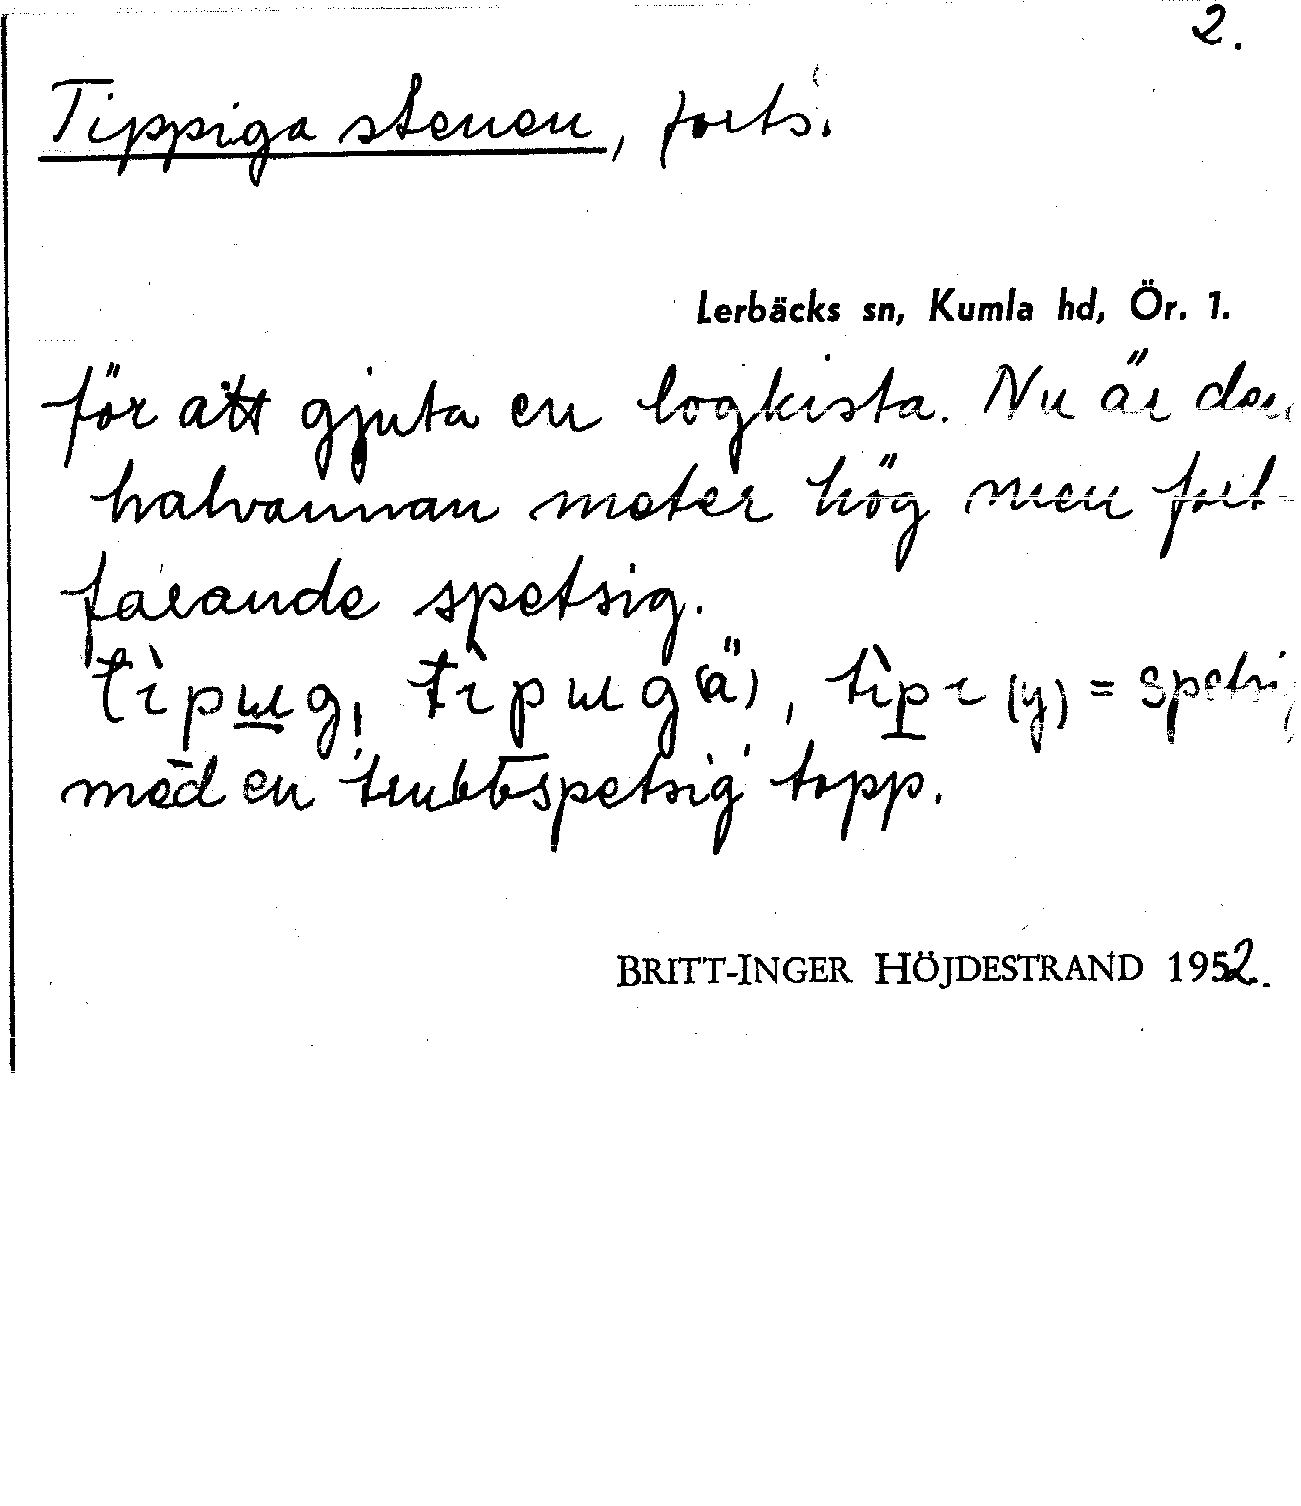 2.
Tippiga stenen, forts.
Lerbäcks sn, Kumla hd, Ör. 1.
för att gjuta en logkista. Nu är den
halvannan meter hög men fort-
farande spetsig.
med en trubbspetsig topp.
BRITT-INGER HÖJDESTRAND 1952.